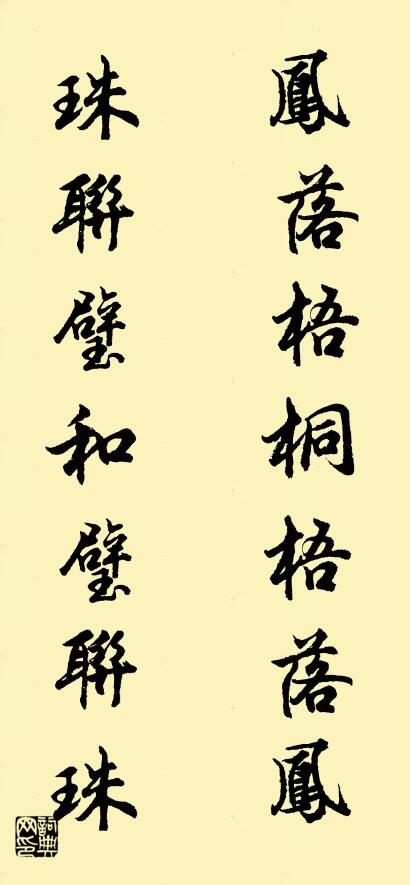 鳳落梧桐梧落鳳
珠聯璧和璧聯珠
詞典网印